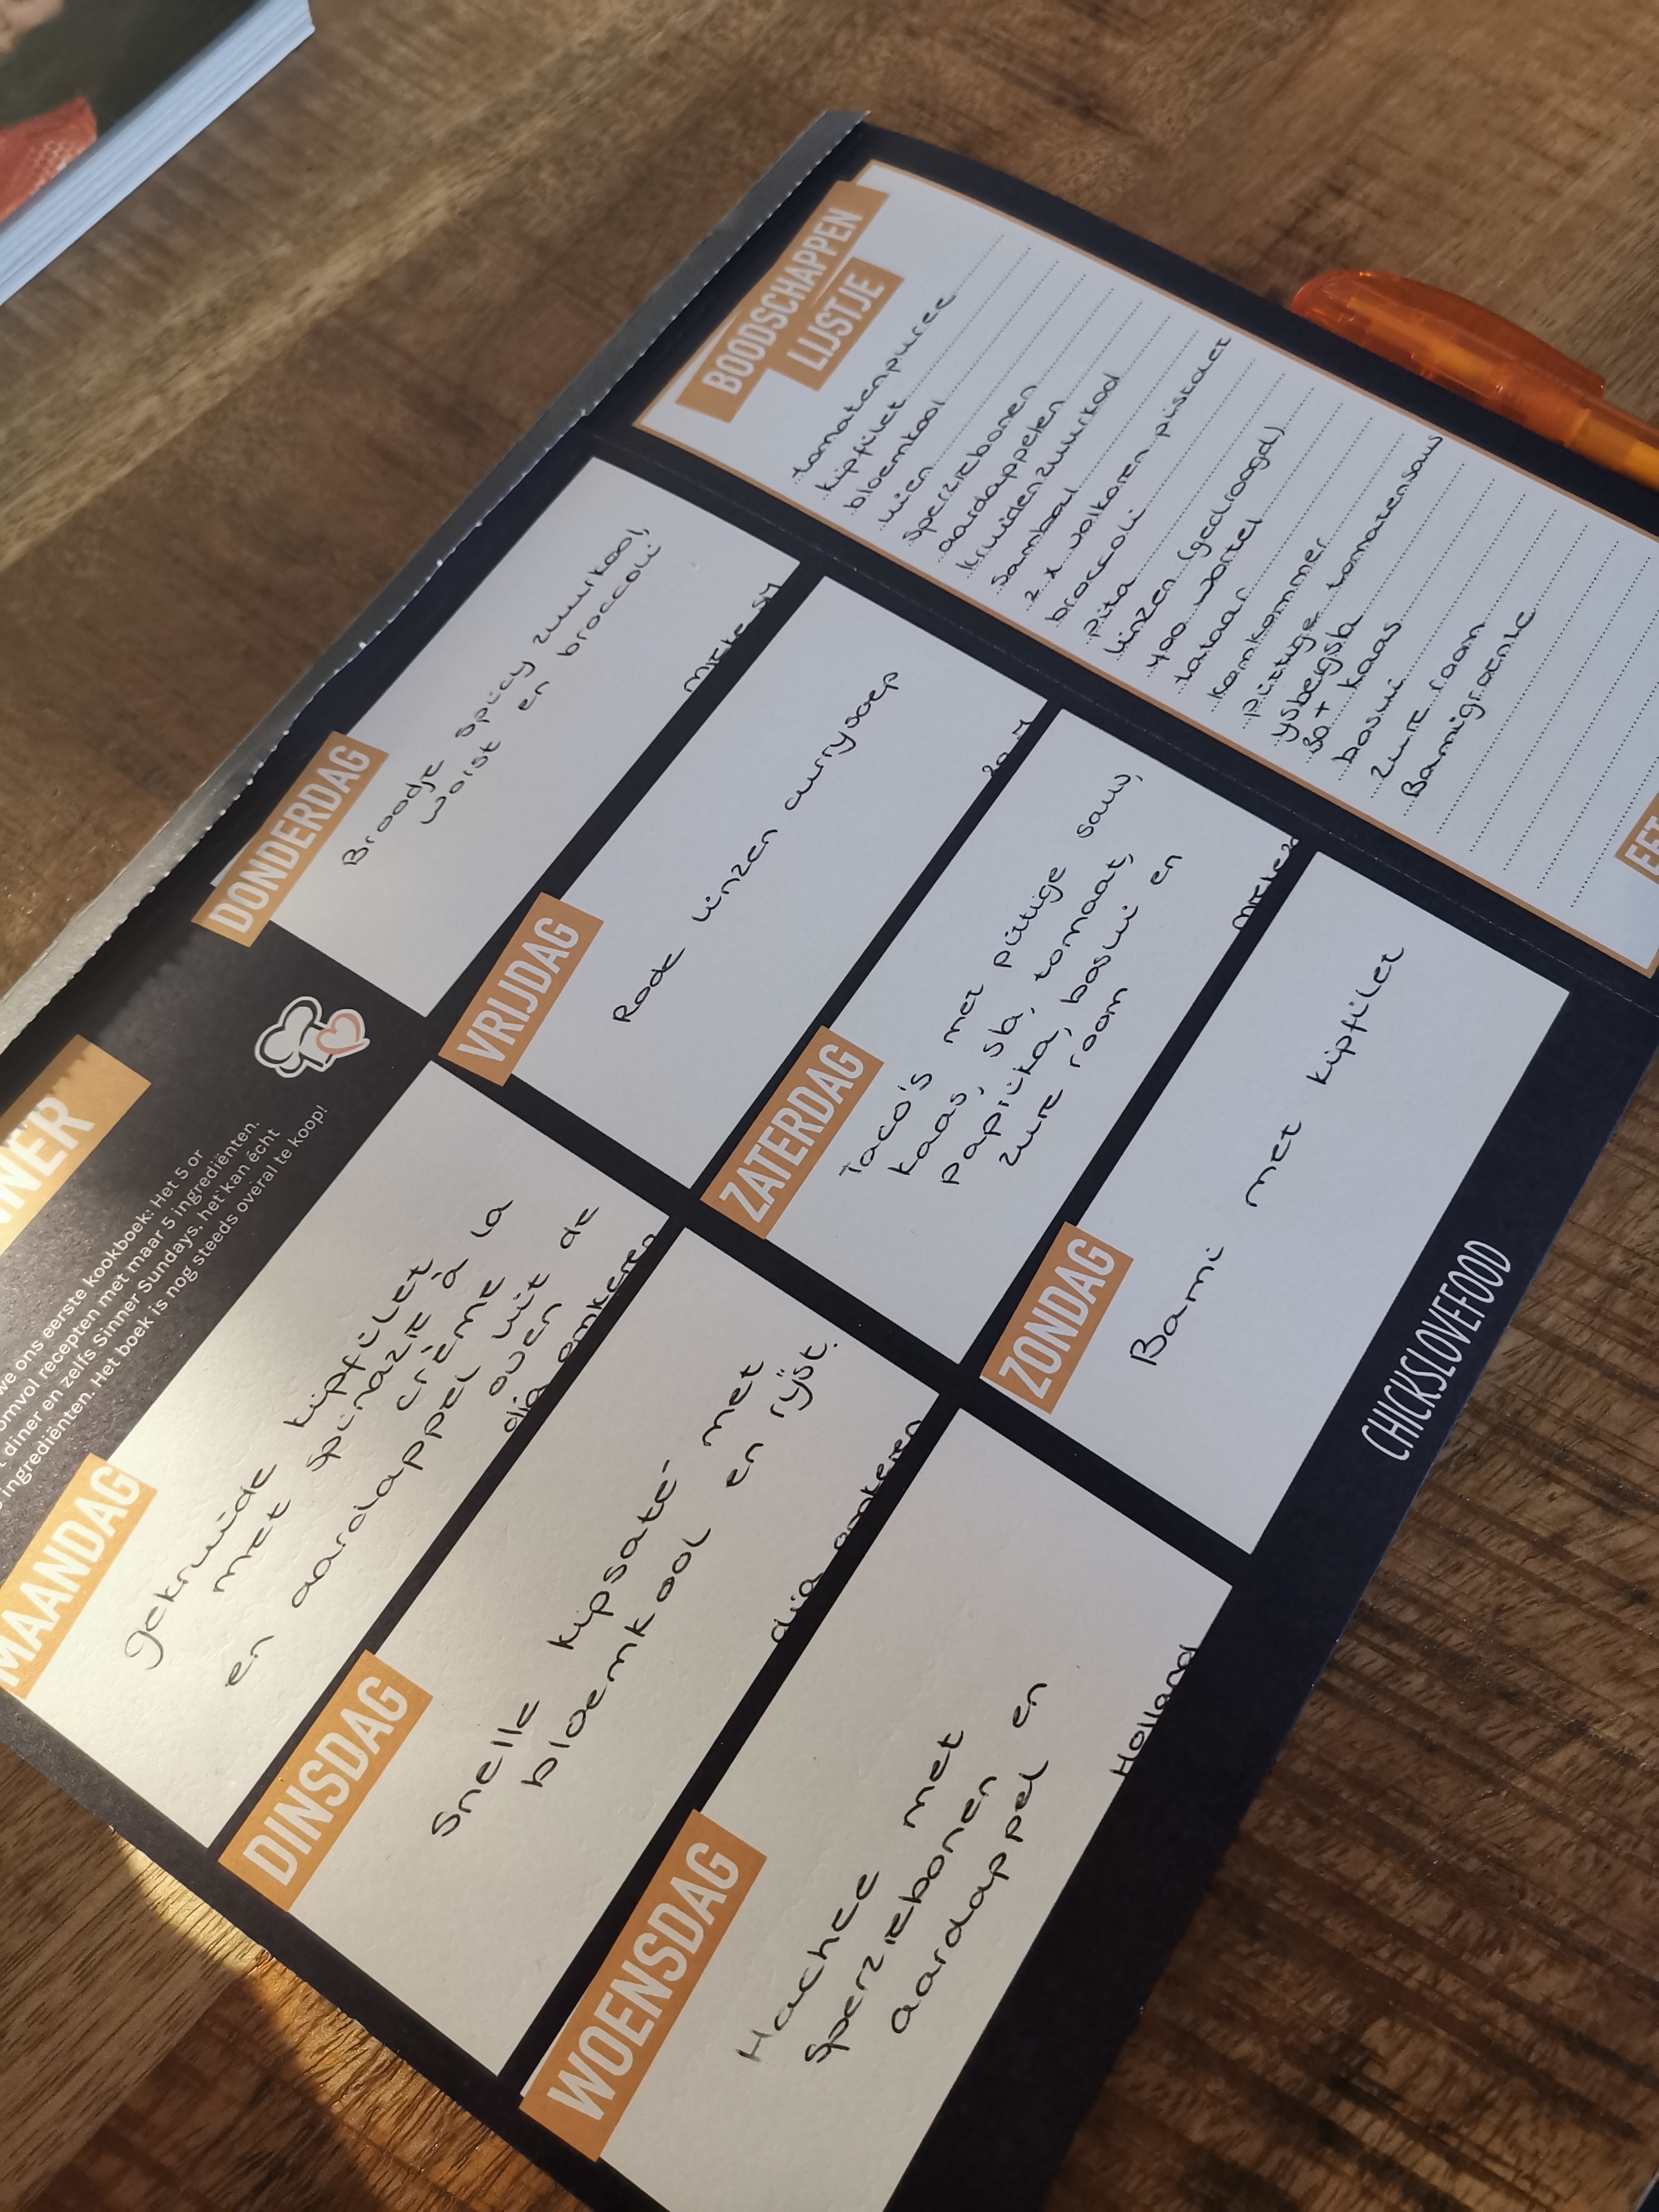 NER
we ons eerste kookboek: Het 5 or
omvol recepten met maar 5 ingrediënten.
diner en zelfs Sinner Sundays, het kan écht
ingrediënten. Het boek is nog steeds overal te koop!
MAANDAG
gekruide kipfilet
met spinazie à la
crème
en aardappel uit de
oven
DINSDAG
Snelle kipsaté met
bloemkool en rijst.
WOENSDAG
Hachee met
sperziebonen en
aardappel
Holland
DONDERDAG
Broodje spicy zuurkool,
worst en broccoli
VRIJDAG
Rode linzen currysoep
ZATERDAG
Taco's met pittige saus,
kaas, sla, tomaat,
paprika, baswi en
zure room
ZONDAG
Bami met kipfilet
CHICKSLOVEFOOD
BOODSCHAPPEN
LIJSTJE
tomatenpuree
kipfilet
bloemkool
uien
sperziebonen
aardappelen
kruidenzuurkool
sambal
2 x volkoren pistolet
broccoli
pita
linzen (gedroogd)
400 wortel
tataar
komkommer
pittige tomatensaus
ysbergsla
30+ kaas
baswi
zure room
Bamigroente
EET